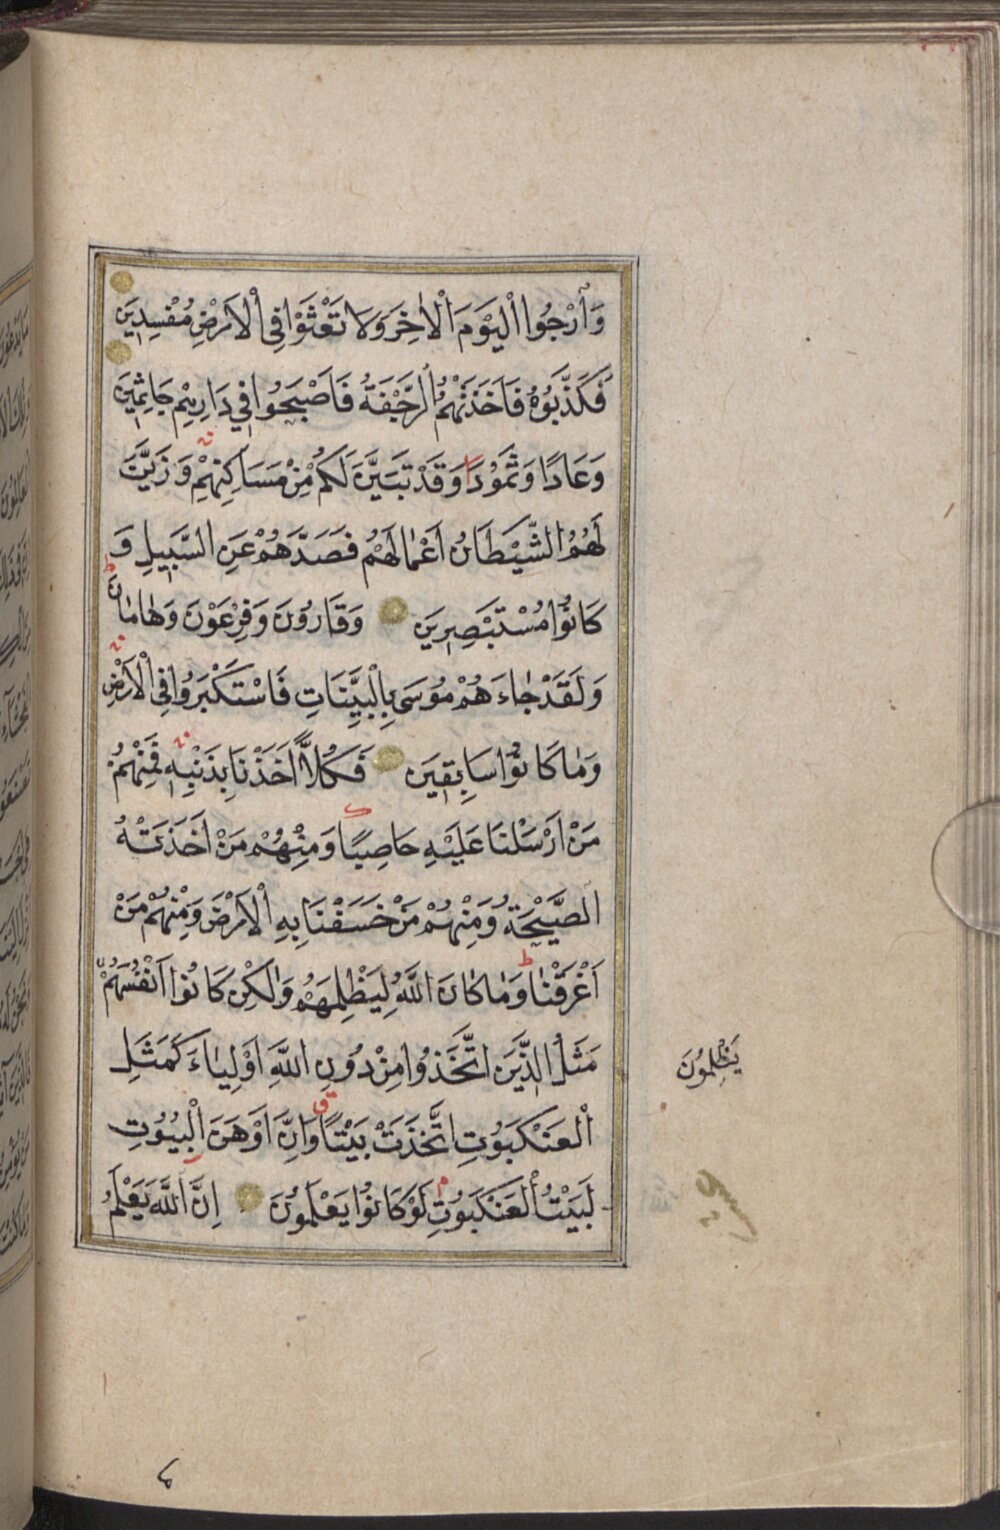 وَٱرْجُوا ٱلْيَوْمَ ٱلْاٰخِرَ وَلَا تَعْثَوْا فِي ٱلْاَرْضِ مُفْسِدِينَ
فَكَذَّبُوهُ فَاَخَذَتْهُمُ ٱلرَّجْفَةُ فَاَصْبَحُوا فِي دَارِهِمْ جَاثِمِينَ
وَعَادًا وَثَمُودَا وَقَدْ تَبَيَّنَ لَكُمْ مِنْ مَسَاكِنِهِمْ وَزَيَّنَ
لَهُمُ الشَّيْطَانُ اَعْمَالَهُمْ فَصَدَّهُمْ عَنِ السَّبِيلِ وَ
كَانُوا مُسْتَبْصِرِينَ وَقَارُونَ وَفِرْعَوْنَ وَهَامَانَ
وَلَقَدْ جَاءَهُمْ مُوسَى بِالْبَيِّنَاتِ فَاسْتَكْبَرُوا فِي ٱلْاَرْضِ
وَمَا كَانُوا سَابِقِينَ فَكُلًّا اَخَذْنَا بِذَنْبِهِ فَمِنْهُمْ
مَنْ اَرْسَلْنَا عَلَيْهِ حَاصِبًا وَمِنْهُمْ مَنْ اَخَذَتْهُ
الصَّيْحَةُ وَمِنْهُمْ مَنْ خَسَفْنَا بِهِ ٱلْاَرْضَ وَمِنْهُمْ مَنْ
اَغْرَقْنَا وَمَا كَانَ اللَّهُ لِيَظْلِمَهُمْ وَلٰكِنْ كَانُوا اَنْفُسَهُمْ
يَظْلِمُونَ
مَثَلُ الَّذِينَ اتَّخَذُوا مِنْ دُونِ اللَّهِ اَوْلِيَاءَ كَمَثَلِ
الْعَنْكَبُوتِ اتَّخَذَتْ بَيْتًا وَاِنَّ اَوْهَنَ الْبُيُوتِ
لَبَيْتُ الْعَنْكَبُوتِ لَوْ كَانُوا يَعْلَمُونَ اِنَّ اللَّهَ يَعْلَمُ